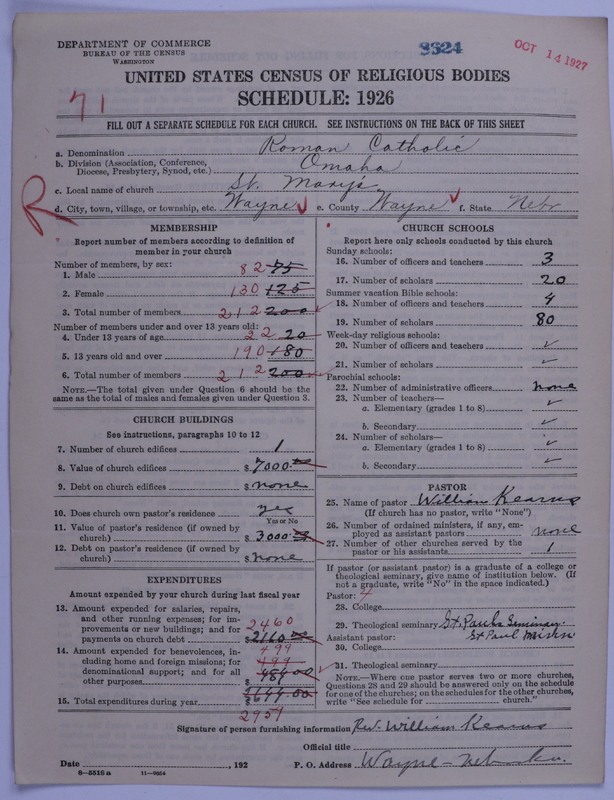 DEPARTMENT OF COMMERCE
BUREAU OF THE CENSUS
WASHINGTON
8324
OCT 14 1927
UNITED STATES CENSUS OF RELIGIOUS BODIES
SCHEDULE: 1926
71
FILL OUT A SEPARATE SCHEDULE FOR EACH CHURCH. SEE INSTRUCTIONS ON THE BACK OF THIS SHEET
a. Denomination Roman Catholic
b. Division (Association, Conference, Diocese, Presbytery, Synod, etc.) Omaha
c. Local name of church St. Marys
R
d. City, town, village, or township, etc. Wayne e. County Wayne f. State Nebr
MEMBERSHIP
Report number of members according to definition of
member in your church
Number of members, by sex:
1. Male 82 75
2. Female 130 125
3. Total number of members 212 200
Number of members under and over 13 years old:
4. Under 13 years of age 22 20
5. 13 years old and over 190 180
6. Total number of members 212 200
NOTE.—The total given under Question 6 should be the
same as the total of males and females given under Question 3.
CHURCH BUILDINGS
See instructions, paragraphs 10 to 12
7. Number of church edifices 1
8. Value of church edifices $ 7000.00
9. Debt on church edifices $ none
10. Does church own pastor's residence? yes
Yes or No
11. Value of pastor's residence (if owned by
church) $ 3000.00
12. Debt on pastor's residence (if owned by
church) $ none
EXPENDITURES
Amount expended by your church during last fiscal year
13. Amount expended for salaries, repairs,
and other running expenses; for im-
provements or new buildings; and for
payments on church debt $ 2460 2160.00
14. Amount expended for benevolences, in-
cluding home and foreign missions; for
denominational support; and for all
other purposes $ 499 499 484.00
15. Total expenditures during year $ 2644.00
2959
CHURCH SCHOOLS
Report here only schools conducted by this church
Sunday schools:
16. Number of officers and teachers 3
17. Number of scholars 20
Summer vacation Bible schools:
18. Number of officers and teachers 4
19. Number of scholars 80
Week-day religious schools:
20. Number of officers and teachers
21. Number of scholars
Parochial schools:
22. Number of administrative officers none
23. Number of teachers—
a. Elementary (grades 1 to 8)
b. Secondary
24. Number of scholars—
a. Elementary (grades 1 to 8)
b. Secondary
PASTOR
25. Name of pastor William Kearns
(If church has no pastor, write "None")
26. Number of ordained ministers, if any, em-
ployed as assistant pastors none
27. Number of other churches served by the
pastor or his assistants 1
If pastor (or assistant pastor) is a graduate of a college or
theological seminary, give name of institution below. (If
not a graduate, write "No" in the space indicated.)
Pastor:
28. College
29. Theological seminary St Pauls Seminary
Assistant pastor: St Paul Minn
30. College
31. Theological seminary
NOTE.—Where one pastor serves two or more churches,
Questions 28 and 29 should be answered only on the schedule
for one of the churches; on the schedules for the other churches,
write "See schedule for church."
Signature of person furnishing information Rev. William Kearns
Official title
Date , 192 P. O. Address Wayne - Nebr
8—5518a 11—9054